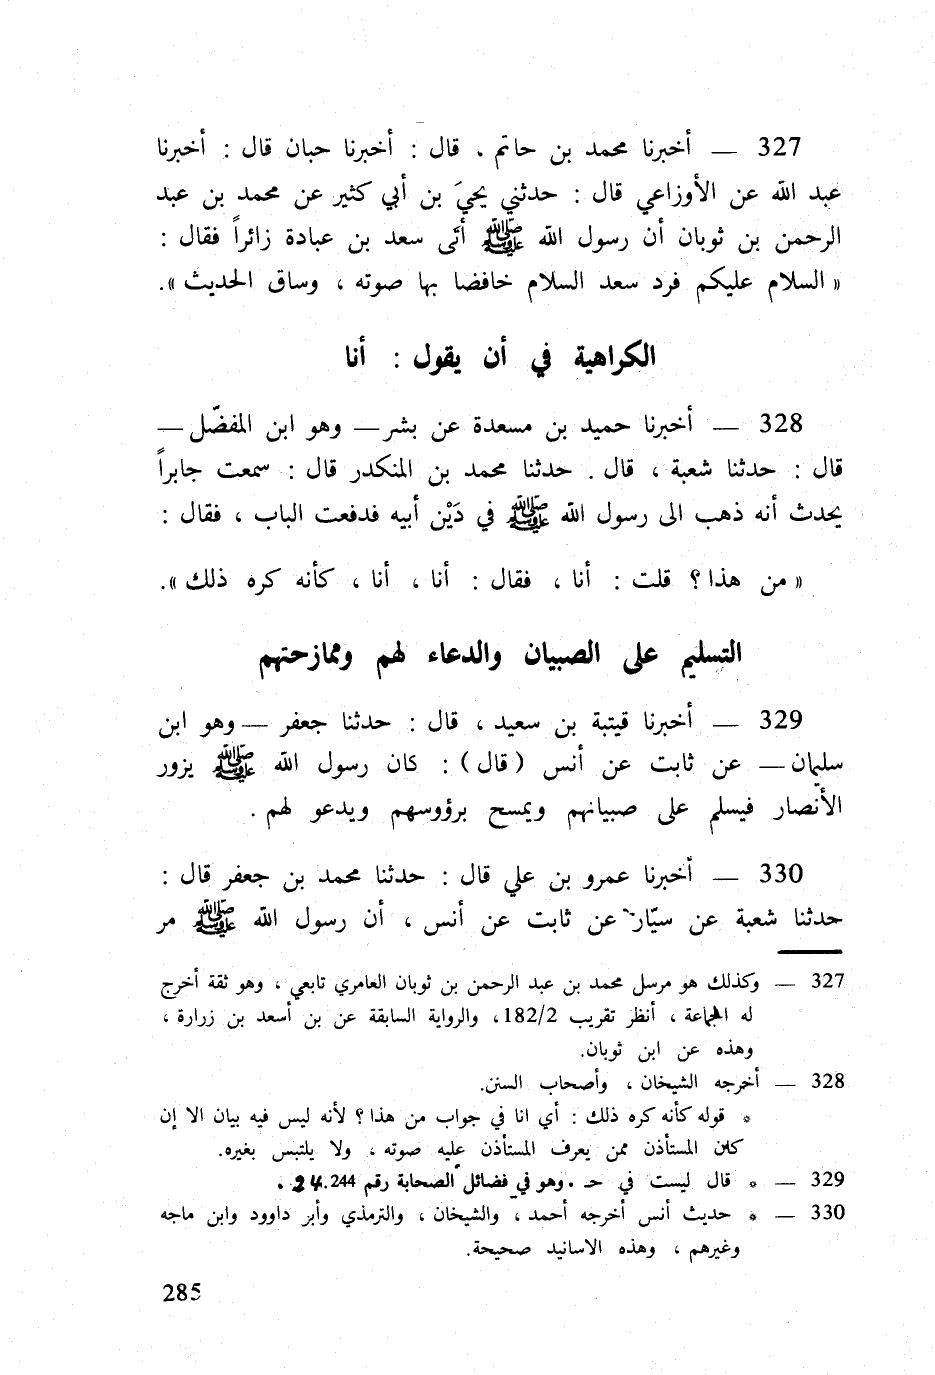 327 — أخبرنا محمد بن حاتم . قال : أخبرنا حبان قال : أخبرنا
عبد الله عن الأوزاعي قال : حدثني يحيَ بن أبي كثير عن محمد بن عبد
الرحمن بن ثوبان أن رسول الله ﷺ أتى سعد بن عبادة زائراً فقال :
« السلام عليكم فرد سعد السلام خافضا بها صوته ، وساق الحديث ».
الكراهية في أن يقول : أنا
328 — أخبرنا حميد بن مسعدة عن بشر — وهو ابن المفضّل —
قال : حدثنا شعبة ، قال . حدثنا محمد بن المنكدر قال : سمعت جابراً
يحدث أنه ذهب الى رسول الله ﷺ في دَيْن أبيه فدفعت الباب ، فقال :
« من هذا ؟ قلت : أنا ، فقال : أنا ، أنا ، كأنه كره ذلك ».
التسليم على الصبيان والدعاء لهم وممازحتهم
329 — أخبرنا قيتبة بن سعيد ، قال : حدثنا جعفر — وهو ابن
سليمان — عن ثابت عن أنس ( قال ) : كان رسول الله ﷺ يزور
الأنصار فيسلم على صبيانهم ويمسح برؤوسهم ويدعو لهم .
330 — أخبرنا عمرو بن علي قال : حدثنا محمد بن جعفر قال :
حدثنا شعبة عن سيّار عن ثابت عن أنس ، أن رسول الله ﷺ مر
327 — وكذلك هو مرسل محمد بن عبد الرحمن بن ثوبان العامري تابعي ، وهو ثقة أخرج
له الجماعة ، أنظر تقريب 182/2، والرواية السابقة عن بن أسعد بن زرارة ،
وهذه عن ابن ثوبان.
328 — أخرجه الشيخان ، وأصحاب السنن.
* قوله كأنه كره ذلك : أي انا في جواب من هذا ؟ لأنه ليس فيه بيان الا إن
كان المستأذن ممن يعرف المستأذن عليه صوته ، ولا يلتبس بغيره.
329 — * قال ليست في حـ . وهو في فضائل الصحابة رقم 244.
330 — * حديث أنس أخرجه أحمد ، والشيخان ، والترمذي وأبر داوود وابن ماجه
وغيرهم ، وهذه الاسانيد صحيحة.
285